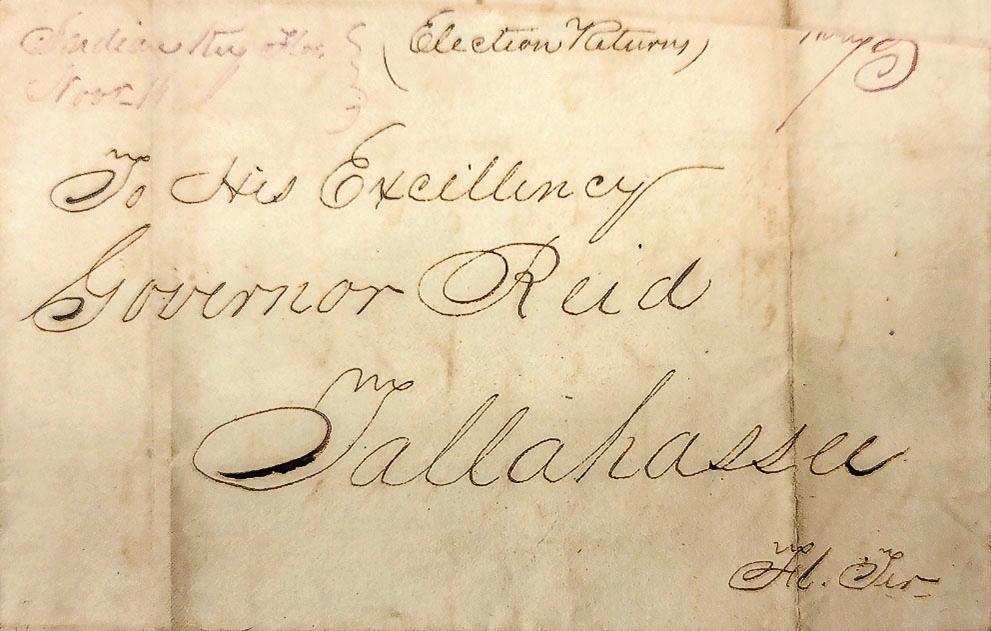 Indian Key Flor. (Election Returns)
Nov. 11
To His Excellency
Governor Reid
Tallahassee
Fl. Ter.